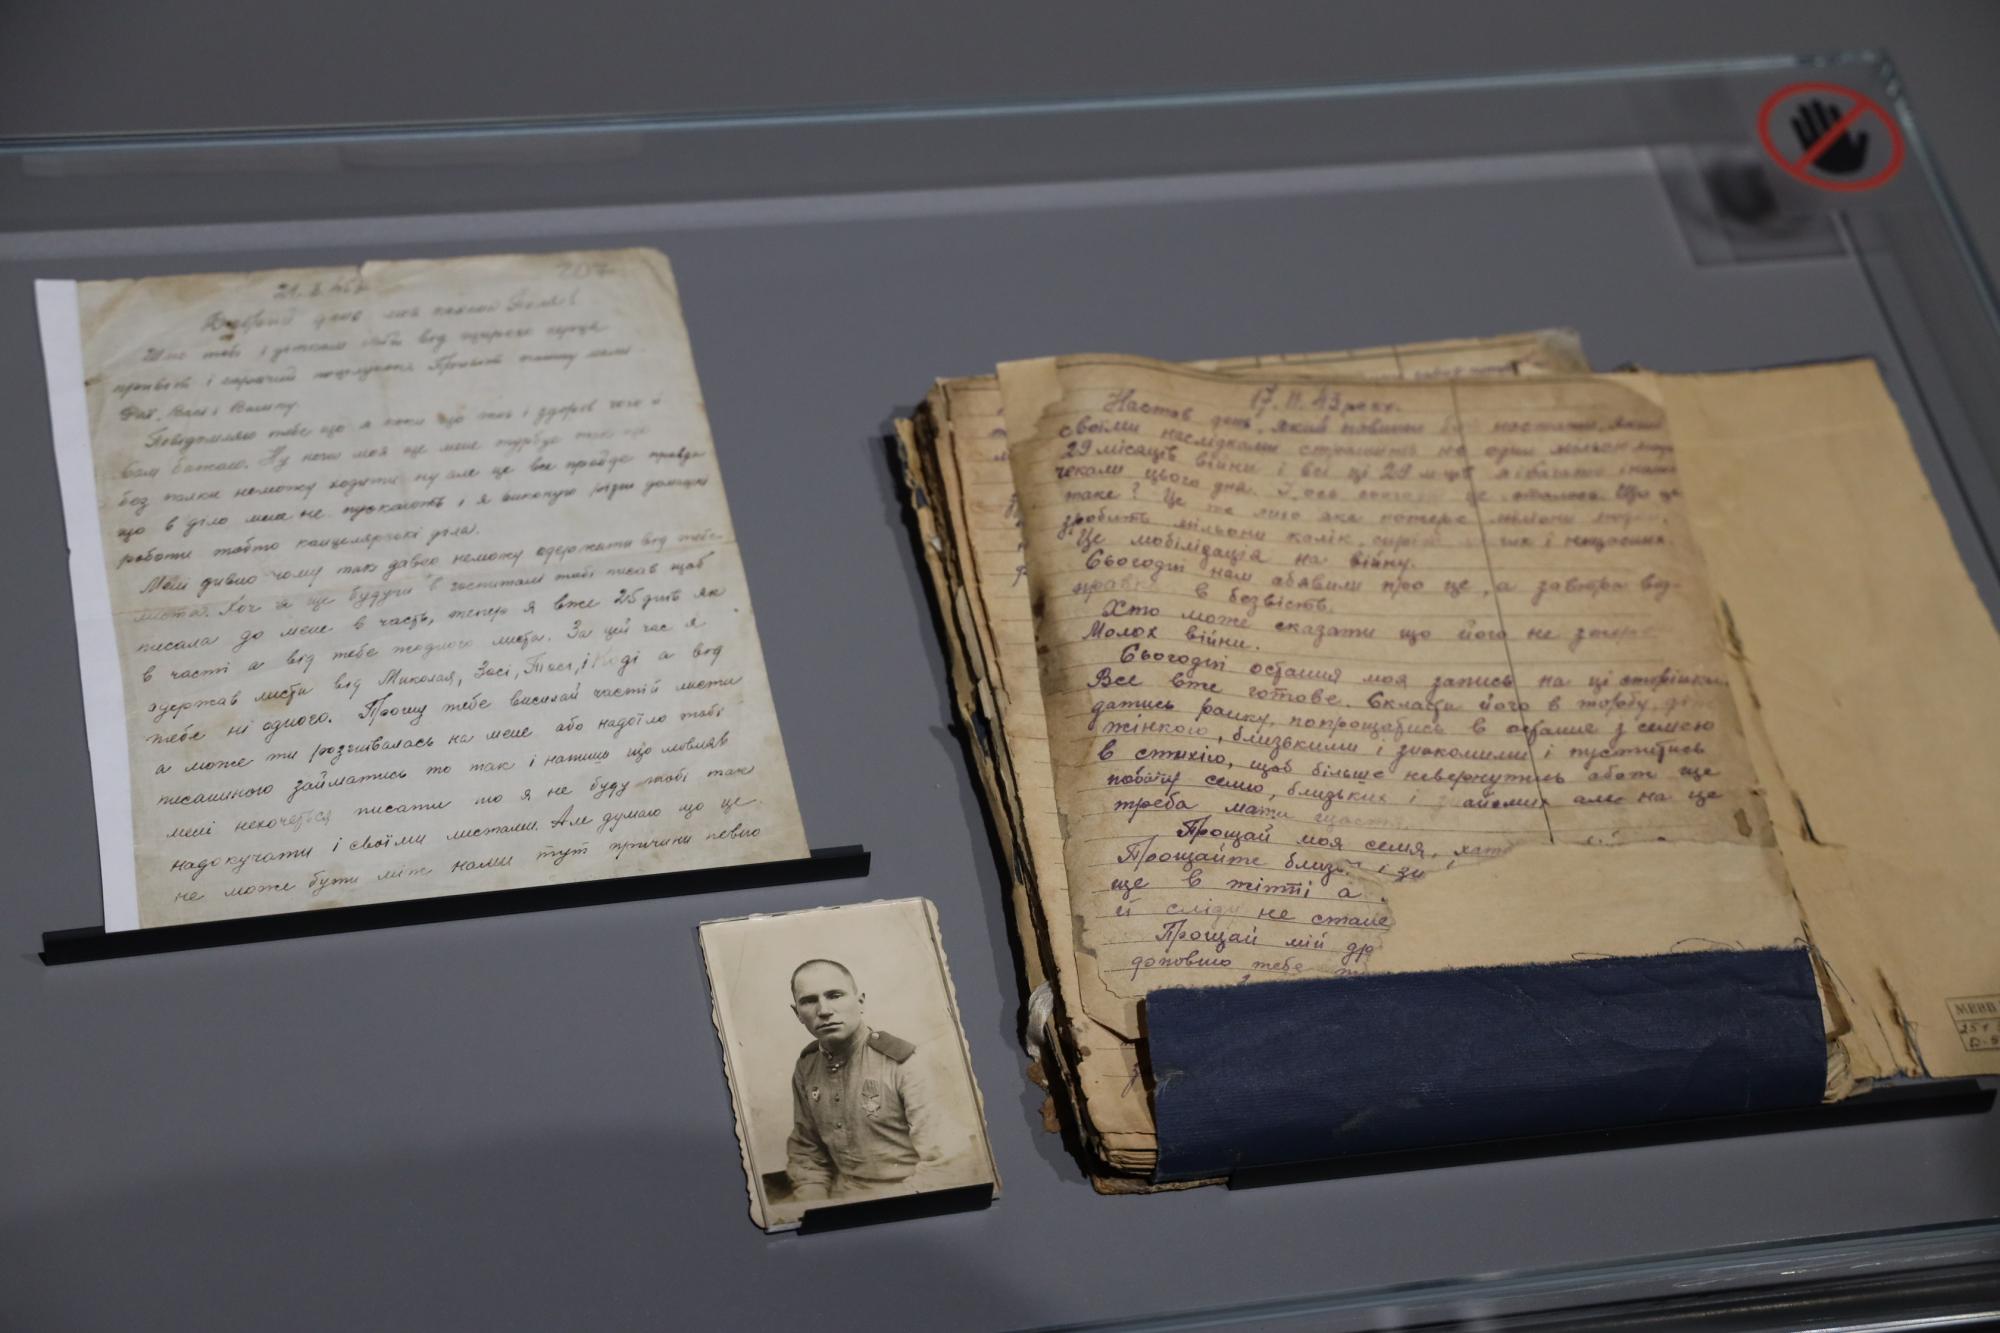 Добрий день моя кохана Поля!
Шлю тобі і діткам від щирого серця
привіт і гарячий поцілунок Привіт мамі
Повідомляю тебе що я поки що жив і здоров чого й
вам бажаю. Ну нога моя ще мене турбує так що
без палки неможу ходити ну але це все пройде правда
що в діло мене не пускають і я виконую різні домашні
роботи тобто канцелярські діла.
Мені дивно чому так давно неможу одержати від тебе
листа. Хоч я ще будучи в госпиталі тобі писав щоб
писала до мене в часть, тепер я вже 25 днів як
в часті а від тебе жодного листа. За цей час я
одержав листи від Миколая, Зосі, Тосі, і а від
тебе ні одного. Прошу тебе висилай частій листи
а може ти розгнівалась на мене або надоїло тобі
писаниною займатись то так і напиши що мовляв
мені нехочеться писати то я не буду тобі так
надокучати і своїми листами. Але думаю що це
не може бути між нами тут причини певно
17. II. 43 року.
Настав день, який повинен настати, який
своїми наслідками страшить не один мільон
29 місяців війни і всі ці 29 м-ців
чекали цього дня. І ось сьогодні це сталося. Що це
таке? Це те лихо яке пожере мільйони людей,
зробить мільони калік, сиріт і нещасних.
Це мобілізація на війну.
Сьогодні нам обявили про це, а завтра від-
прав в безвість.
Хто може сказати що його не зажере
Молох війни.
Сьогодні остання моя запись на ці сторінки.
Все вже готове. Скласти його в торбу,
датись ранку, попрощатись в останнє з семею
жінкою, близькими і знакомими і пуститись
в стихію, щоб більше невернутись або ще
побачу семю, близьких і знайомих але на це
треба мати щастя
Прощай моя семя, хата
Прощайте близькі і зн
ще в житті а
й сліду не стане
Прощай мій др
доповню тебе
МЕВВ